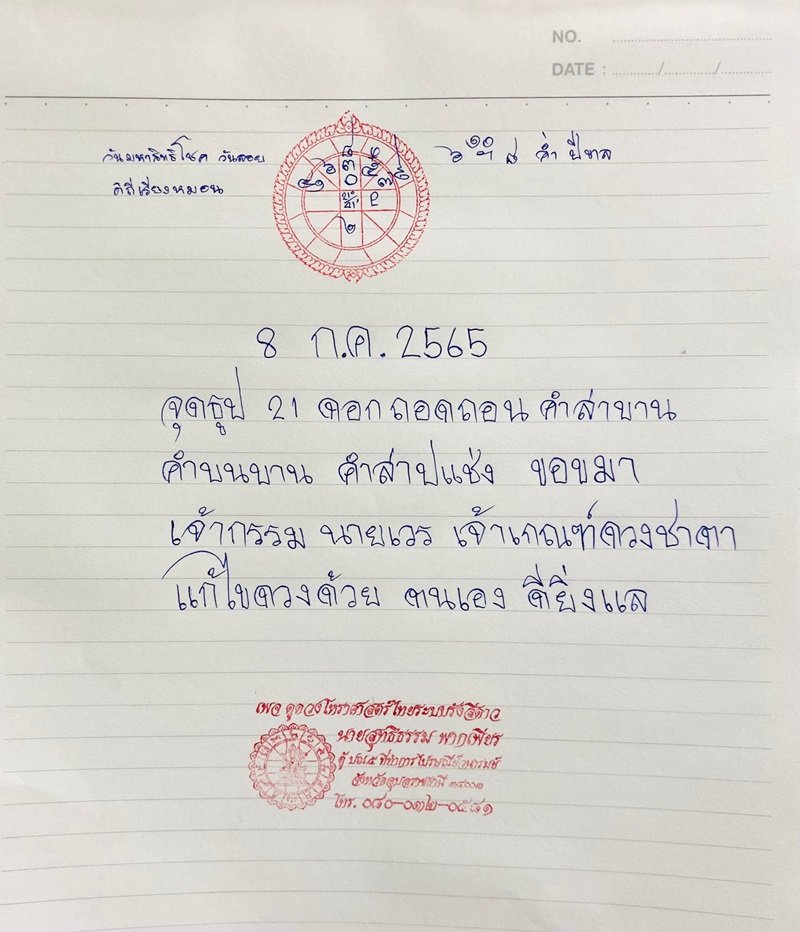 NO.
DATE : ............/............/............
วันมหาสิทธิโชค วันลอย
ดิถีเรียงหมอน
๖ ๑๐ ๘ ค่ำ ปีขาล
8 ก.ค. 2565
จุดธูป 21 ดอก ถอดถอน คำสาบาน
คำบนบาน คำสาปแช่ง ขอขมา
เจ้ากรรม นายเวร เจ้าเกณฑ์ดวงชาตา
แก้ไขดวงด้วย ตนเอง ดียิ่งแล
เพจ ดูดวงโหราศาสตร์ไทยระบบรังสีดาว
นายสุทธิธรรม พากเพียร
ตู้ ปณ.๕ ที่ทำการไปรษณีย์
จังหวัดอุบลราชธานี
โทร. ๐๘๐-๐๓๒-๐๕๘๑